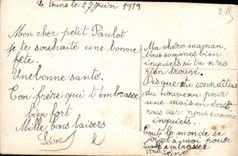 le 27 juin 1919
Mon cher petit Paulot
je te souhaite une bonne
fête
Une bonne santé.
Ton frère qui t'embrasse
bien fort
Mille bons baisers
Léon
Ma chère maman,
nous sommes bien
inquiets si tu n'as
rien trouvé.
Dès que tu connaîtras
du nouveau pour
une maison écris
nous car nous sommes
inquiets.
Tout le monde se
moi pour
embrasser